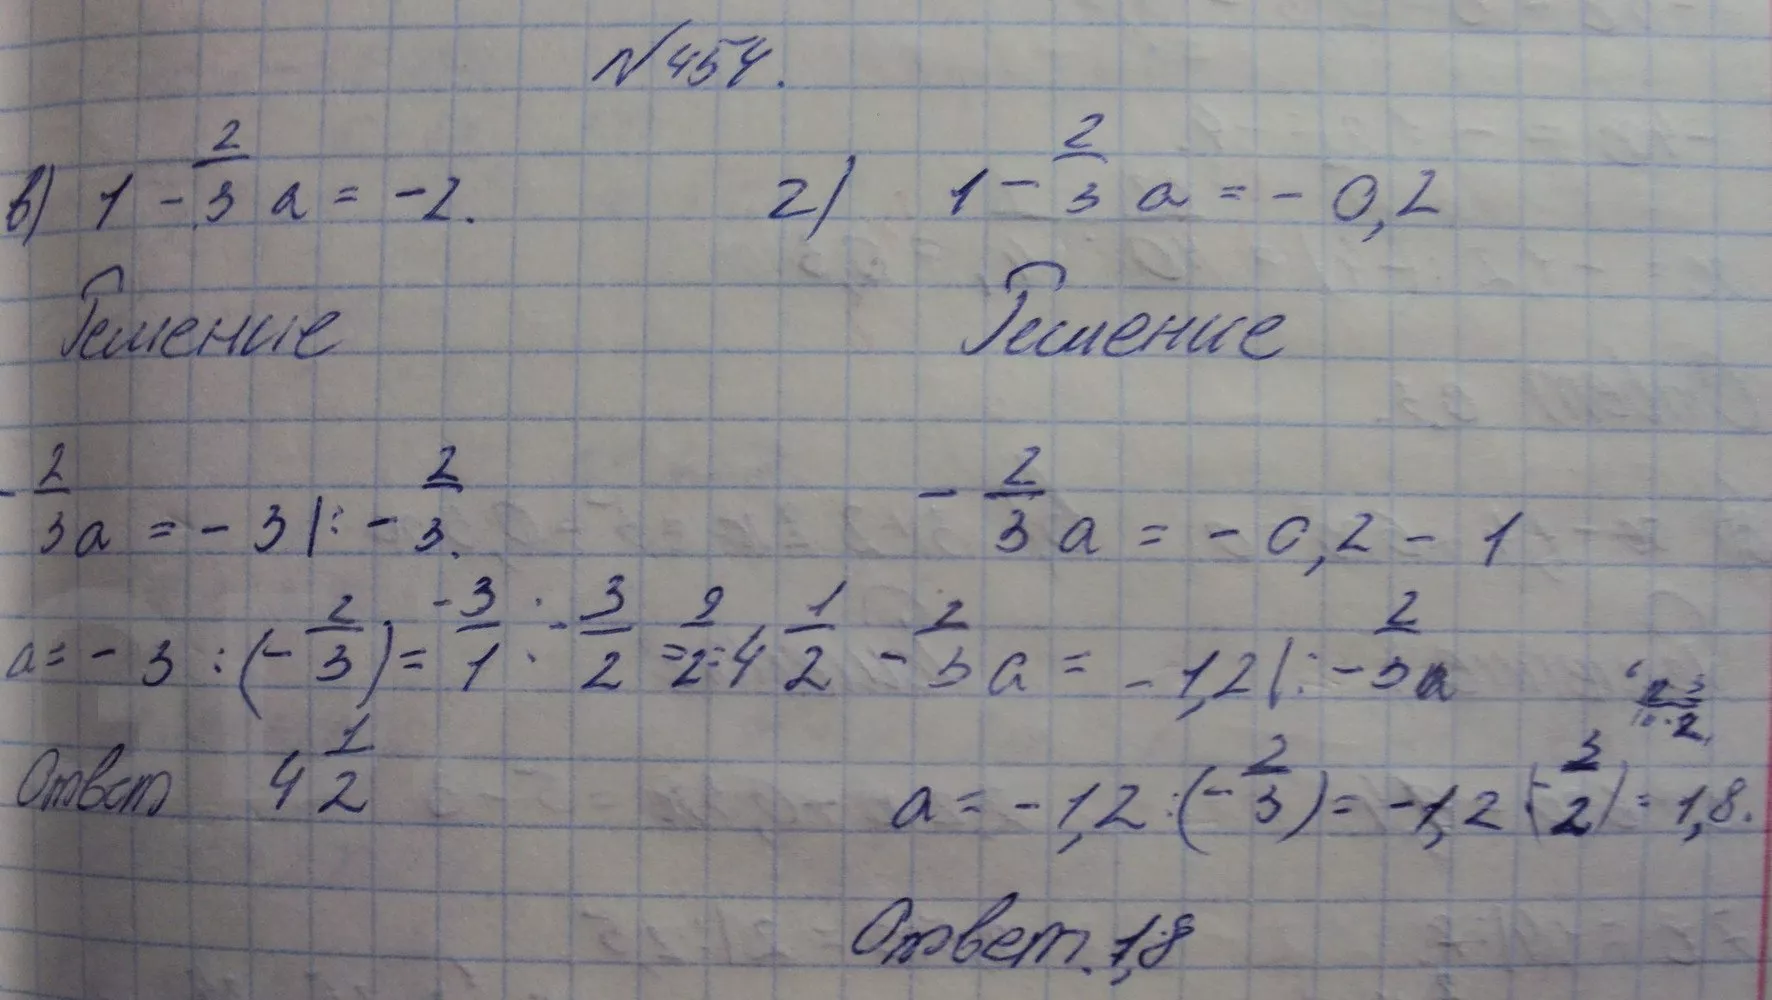 №454.
в) 1 - 2/3 a = -2.
Решение
- 2/3 a = - 3 | : - 2/3.
a = - 3 : (- 2/3) = -3/1 · - 3/2 = 9/2 = 4 1/2
Ответ 4 1/2
г) 1 - 2/3 a = - 0,2
Решение
- 2/3 a = - 0,2 - 1
- 2/3 a = - 1,2 | : - 2/3 a
a = - 1,2 : (- 2/3) = -1,2 · (- 3/2) = 1,8.
Ответ. 1,8